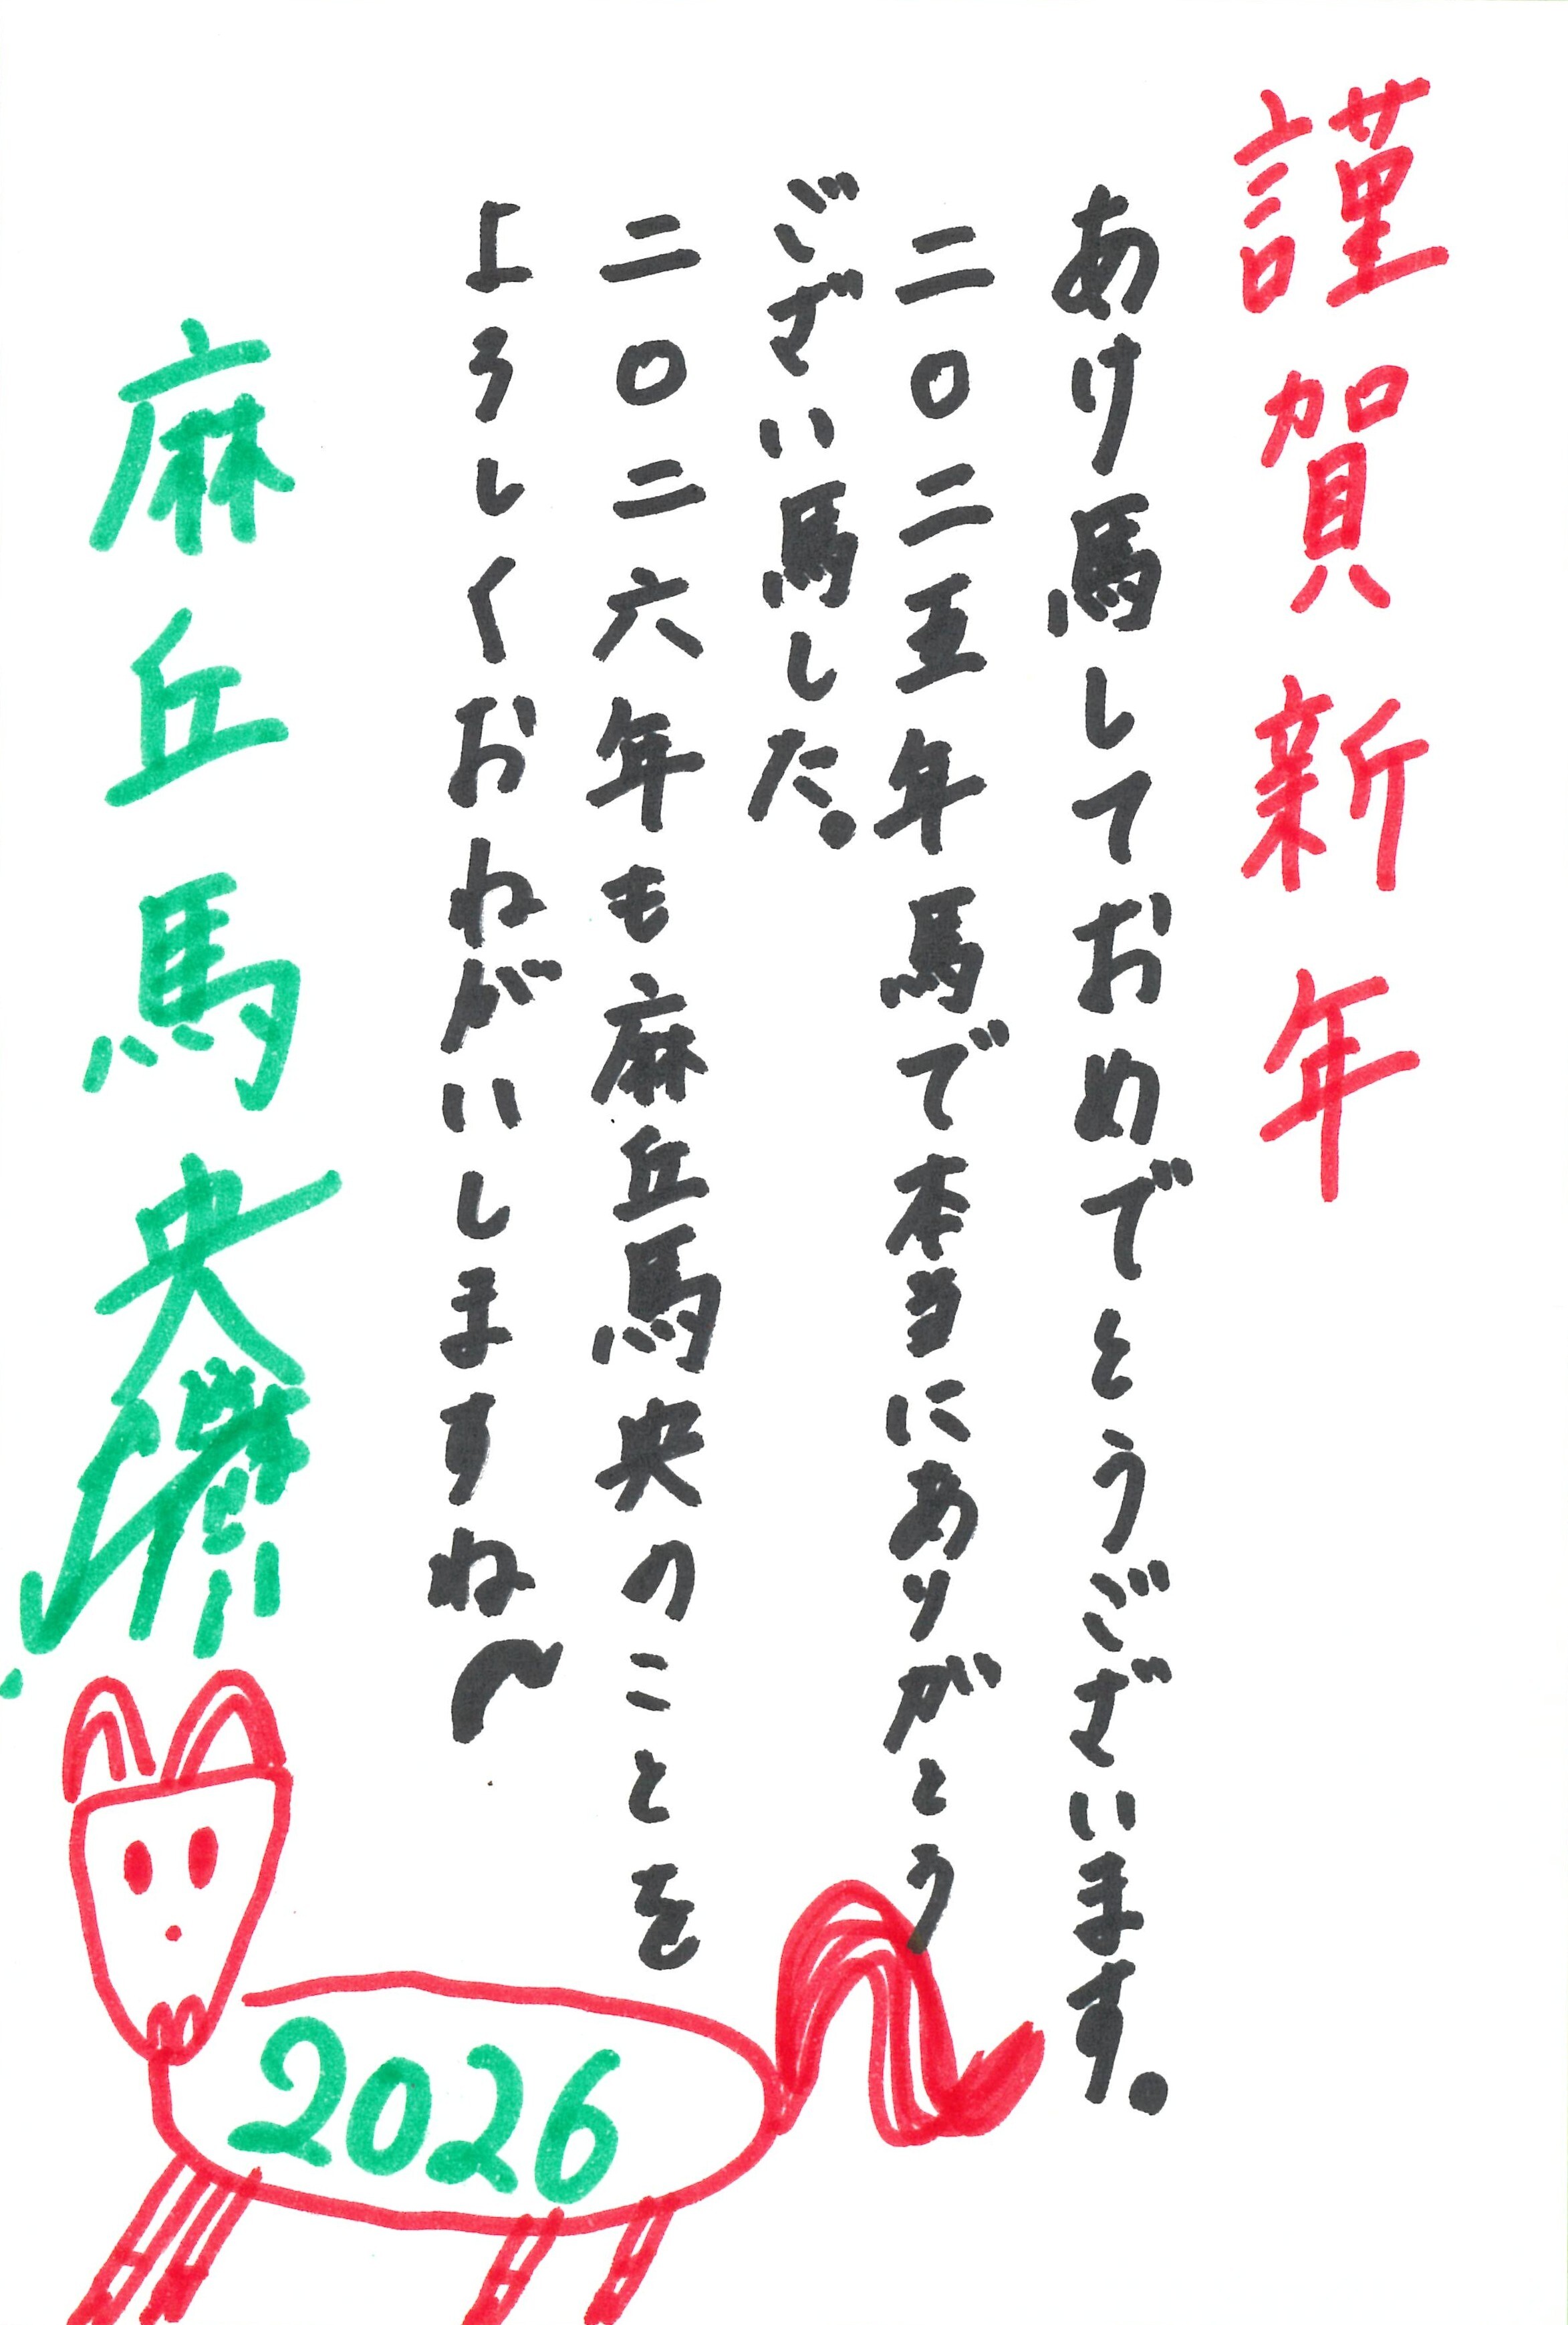 謹賀新年
あけ馬しておめでとうございます。
二〇二五年馬で本当にありがとう
ございい馬した。
二〇二六年も麻丘馬央のことを
よろしくおねがいしますね〜
麻丘馬央
2026